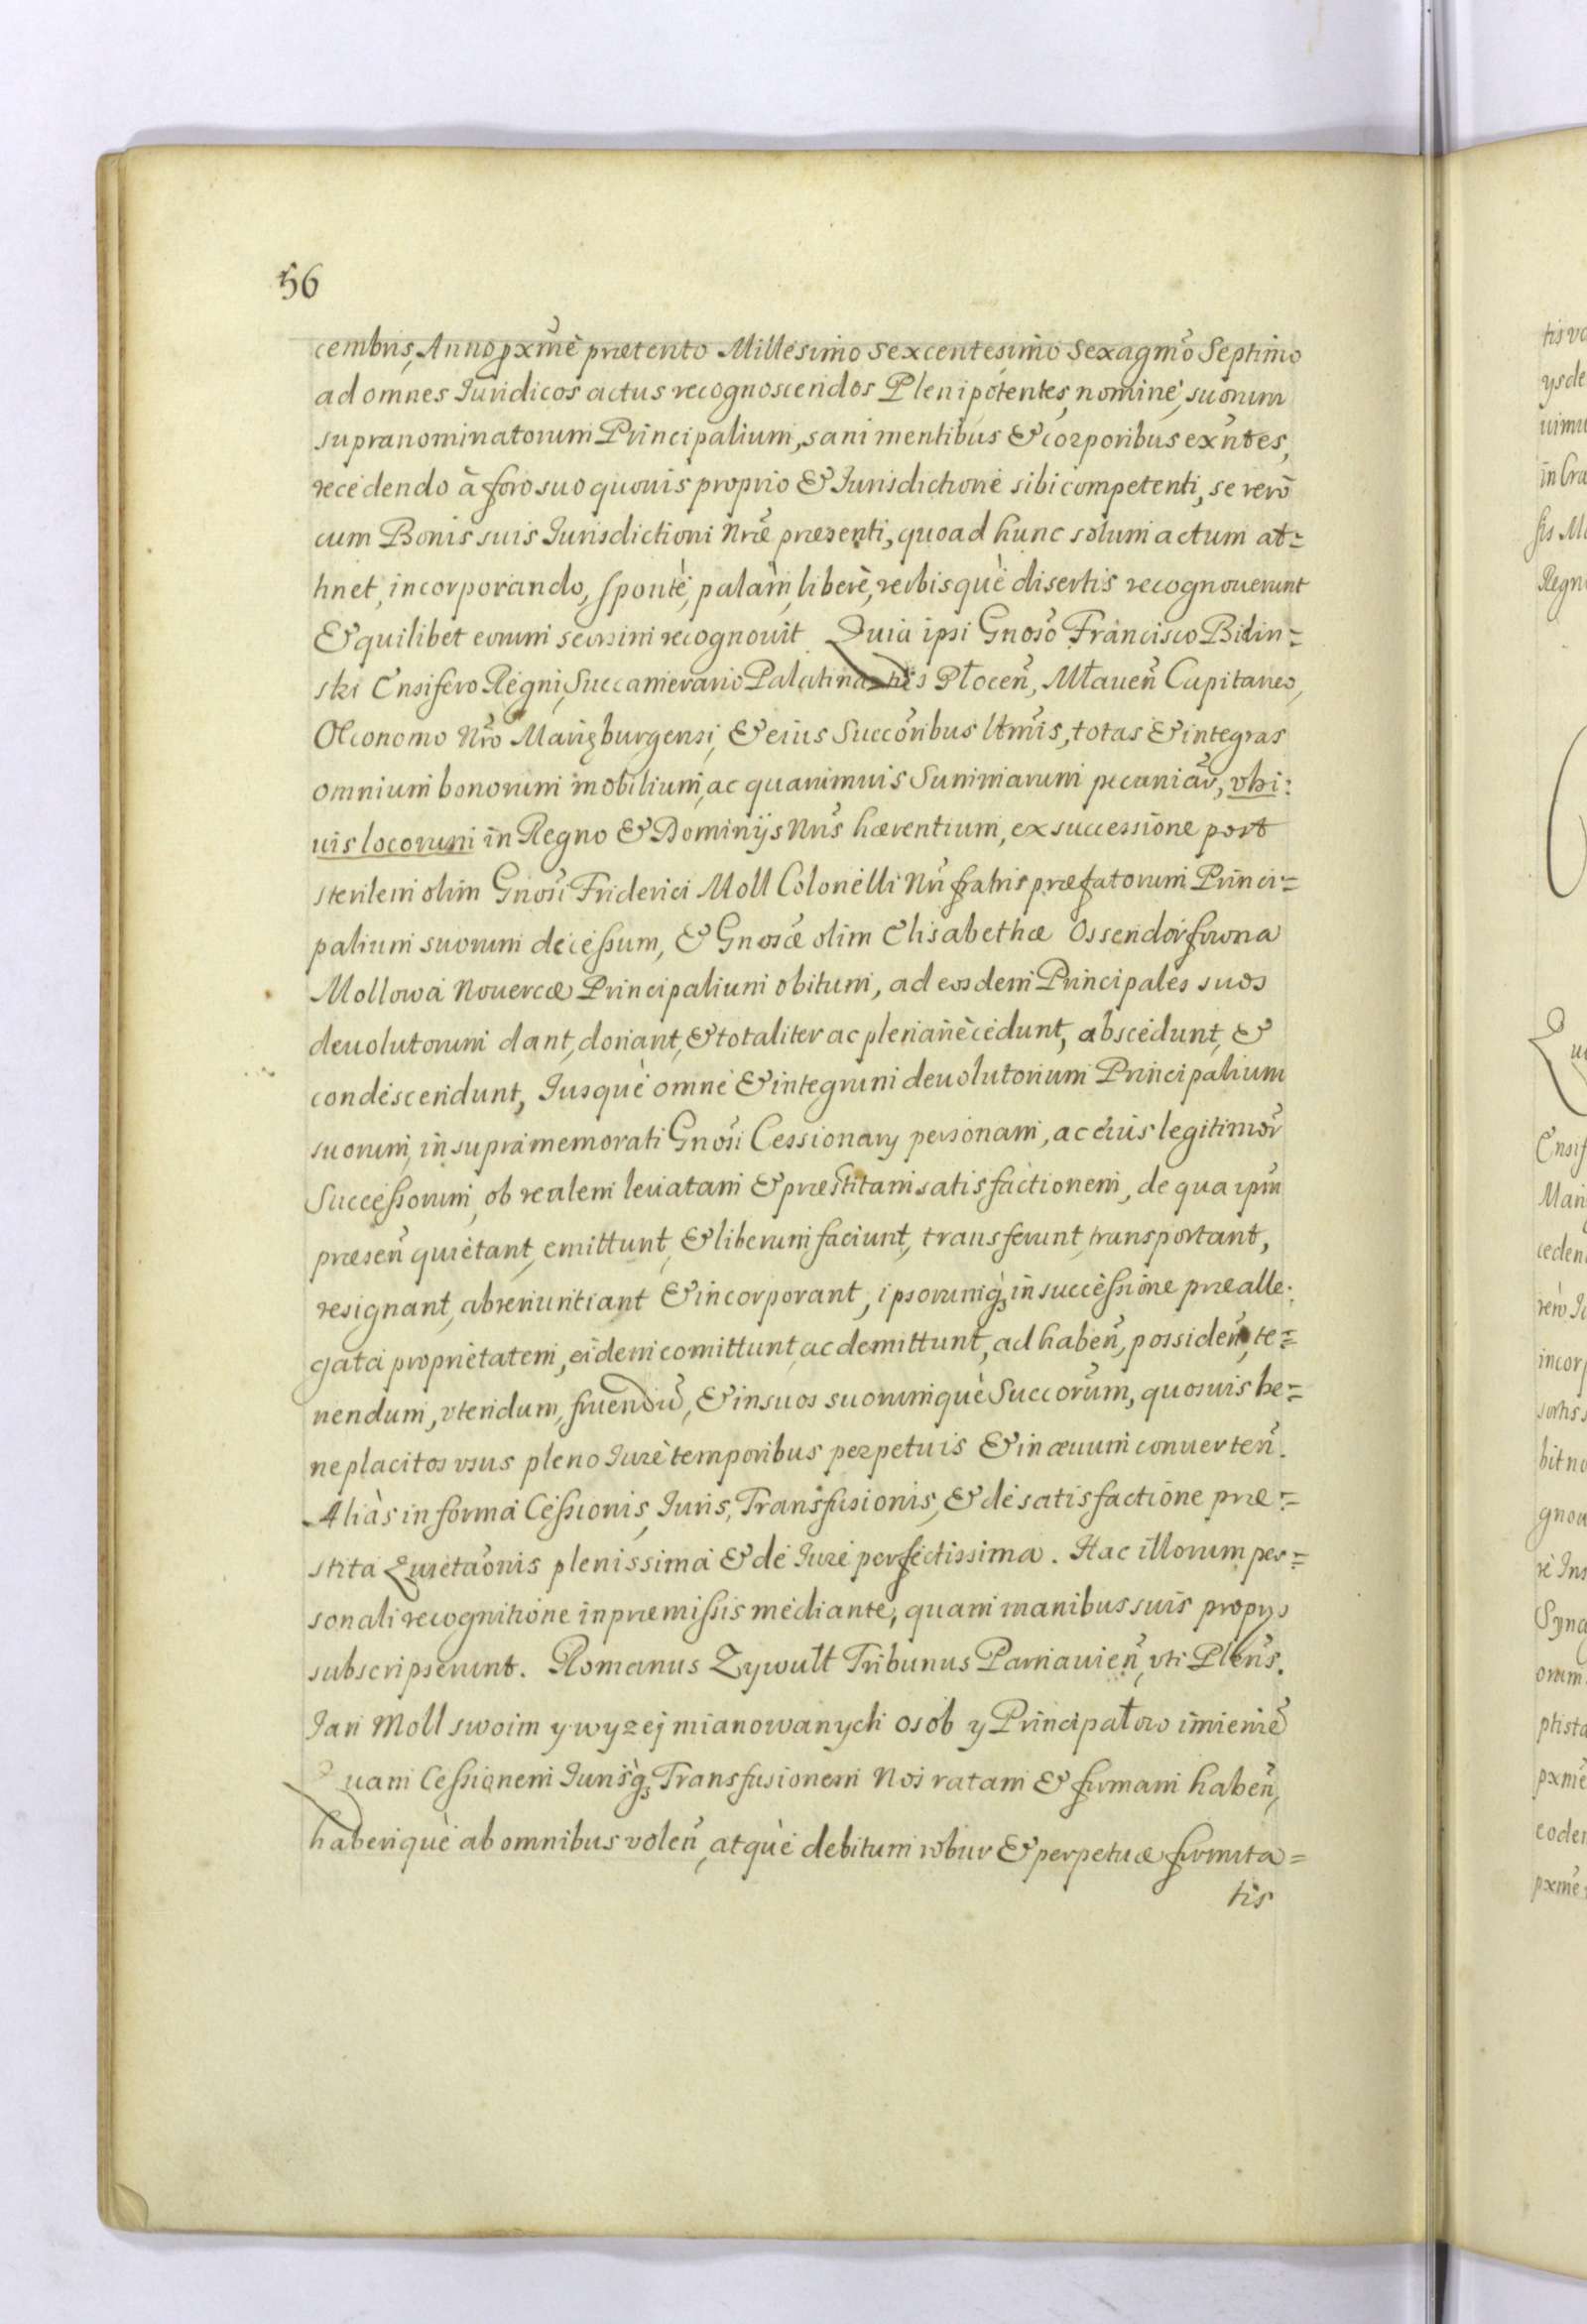 56
cembris, Anno pxm̃e præterito Millesimo Sexcentesimo Sexagm̃o Septimo
ad omnes Iuridicos actus recognoscendos Plenipotentes, nomine, suorum
supranominatorum Principalium, sani mentibus & corporibus exñtes,
recedendo à foro suo quouis proprio & Iurisdictione sibi competenti, se verò
cum Bonis suis Iurisdictioni Nræ præsenti, quoad hunc solum actum at=
tinet, incorporando, sponte, palàm, liberè, verbisquè disertis recognouerunt
& quilibet eorum seorsim recognouit. Quia ipsi Gnoso Francisco Bilin=
ski Ensifero Regni, Succamerario Palatinatus Płoceñ, Mławeñ Capitaneo,
Oeconomo Nro Marięburgensi, & eius Succoribus ltmis, totas & integras
omnium bonorum mobilium, ac quarumuis Summarum pecuniar, vbi:
uis locorum in Regno & Dominijs Nris hærentium, ex successione post
sterilem olim Gnosi Friderici Moll Colonelli Nri fratris præfatorum Princi=
palium suorum decessum, & Gnosæ olim Elisabethæ Ossendorfowna
Mollowa Nouercæ Principalium obitum, ad eosdem Principales suos
deuolutorum dant, donant, & totaliter ac plenariè cedunt, abscedunt, &
condescendunt, Iusquè omne & integrum deuolutorium Principalium
suorum, in supramemorati Gnosi Cessionarij personam, ac eius legitimor
Successorum, ob realem leuatam & præstitam satisfactionem, de qua ipm
præseñ quietant, emittunt, & liberum faciunt, transferunt, transportant,
resignant, abrenuntiant & incorporant, ipsorumq; in successione prealle:
gata proprietatem, eidem comittunt, ac demittunt, ad habeñ, possideñ, te=
nendum, vtendum, fruendũ, & in suos suorumquè Succorum, quosuis be=
neplacitos vsus pleno Iure temporibus perpetuis & in æuum conuerteñ.
Aliàs in forma Cessionis, Iuris, Transfusionis, & de satisfactione præ=
stita Quietaõnis plenissima & de Iure perfectissima. Hac illorum per=
sonali recognitione in præmissis mediante, quam manibus suis propijs
subscripserunt. Romanus Zywułt Tribunus Parnauieñ, vti Pleñs.
Jan Moll swoim y wyzej mianowanych osob y Principałow imieniẽ
Quam Cessionem Iurisq; Transfusionem Nos ratam & firmam habeñ,
haberiquè ab omnibus voleñ, atquè debitum robur & perpetuæ firmita=
tis